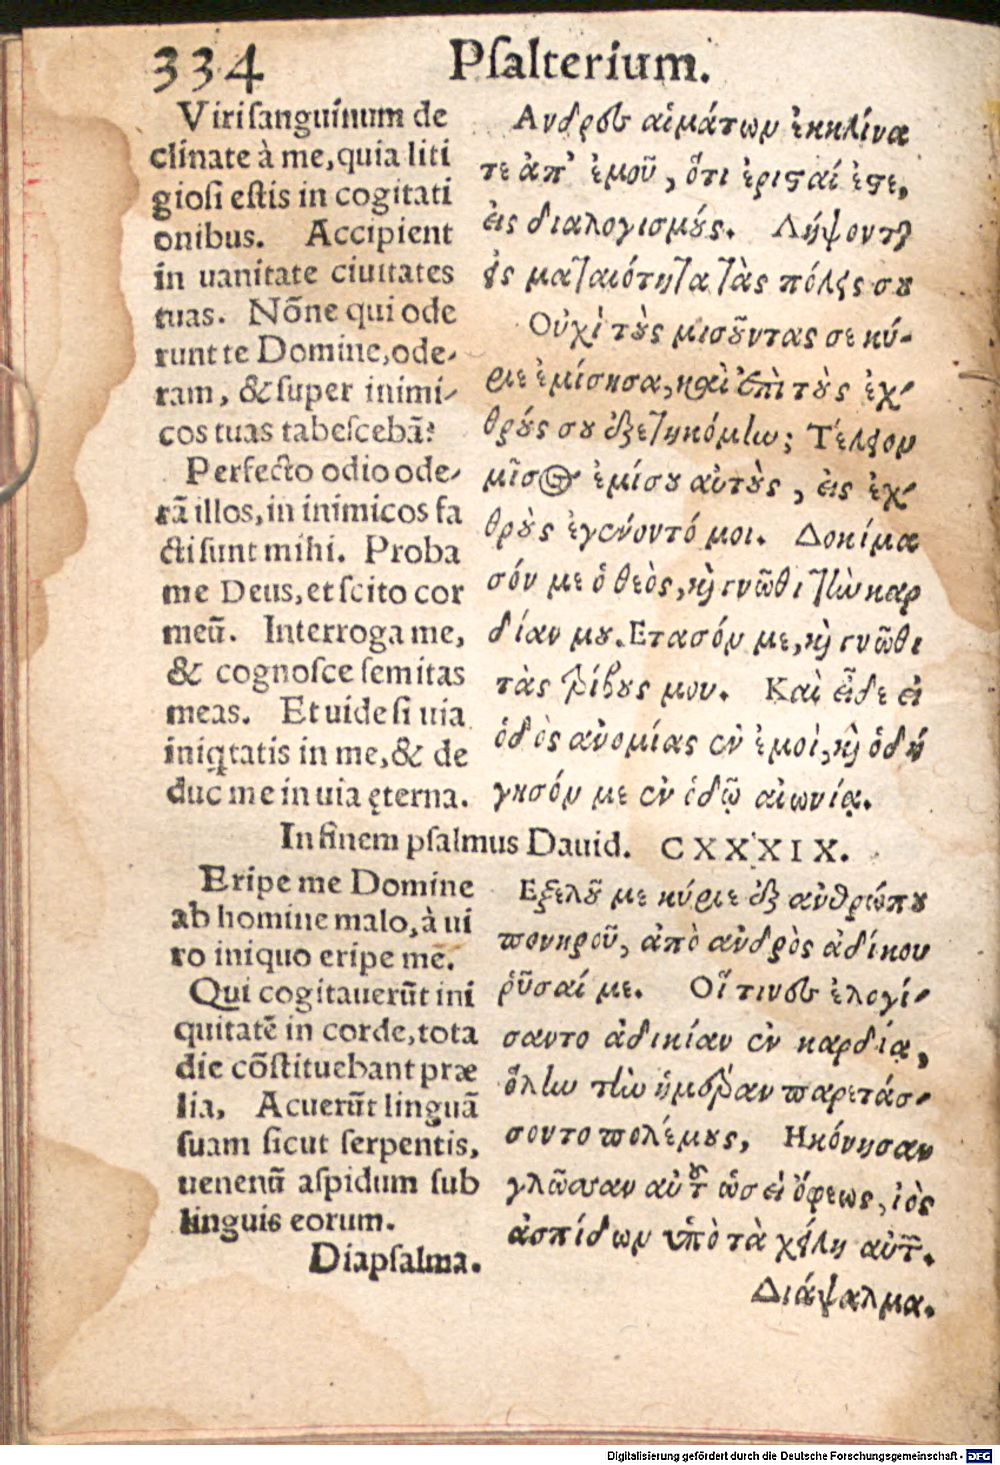 334 Pſalterium.
Viri ſanguinum de
clinate à me, quia liti
gioſi eſtis in cogitati
onibus. Accipient
in uanitate ciuitates
tuas. Nõne qui ode
runt te Domine, ode-
ram, & ſuper inimi-
cos tuas tabeſcebã?
Perfecto odio ode-
rã illos, in inimicos fa
cti ſunt mihi. Proba
me Deus, et ſcito cor
meũ. Interroga me,
& cognoſce ſemitas
meas. Et uide ſi uia
iniq̃tatis in me, & de
duc me in uia ęterna.
Ανδρες αἱμάτων ἐκκλίνα
τε ἀπ' ἐμοῦ, ὅτι ἐρισταί ἐστε,
εἰς διαλογισμούς. Λήψονται
εἰς ματαιότητα τὰς πόλεις σου
Οὐχὶ τοὺς μισοῦντας σε κύ-
ριε ἐμίσησα, καὶ ἐπὶ τοὺς ἐχ-
θρούς σου ἐξετηκόμην; Τέλειον
μῖσος ἐμίσουν αὐτοὺς, εἰς ἐχ-
θροὺς ἐγένοντό μοι. Δοκίμα
σόν με ὁ θεὸς, καὶ γνῶθι τὴν καρ
δίαν μου. Ετασόν με, καὶ γνῶθι
τὰς τρίβους μου. Καὶ εἶδε εἰ
ὁδὸς ἀνομίας ἐν ἐμοὶ, καὶ ὁδή
γησόν με ἐν ὁδῷ αἰωνίᾳ.
In finem pſalmus Dauid. CXXXIX.
Eripe me Domine
ab homine malo, à ui
ro iniquo eripe me.
Qui cogitauerũt ini
quitatẽ in corde, tota
die cõſtituebant præ
lia, Acuerũt linguã
ſuam ſicut ſerpentis,
uenenũ aſpidum ſub
linguis eorum.
Diapſalma.
Εξελοῦ με κύριε ἐξ ἀνθρώπου
πονηροῦ, ἀπὸ ἀνδρὸς ἀδίκου
ῥῦσαί με. Οἵ τινες ἐλογί-
σαντο ἀδικίαν ἐν καρδίᾳ,
ὅλην τὴν ἡμέραν παρετάσ-
σοντο πολέμους, Ηκόνησαν
γλῶσσαν αὐτῶν ὡσεὶ ὄφεως, ἰὸς
ἀσπίδων ὑπὸ τὰ χείλη αὐτῶν.
Διάψαλμα.
Digitalisierung gefördert durch die Deutsche Forschungsgemeinschaft - DFG